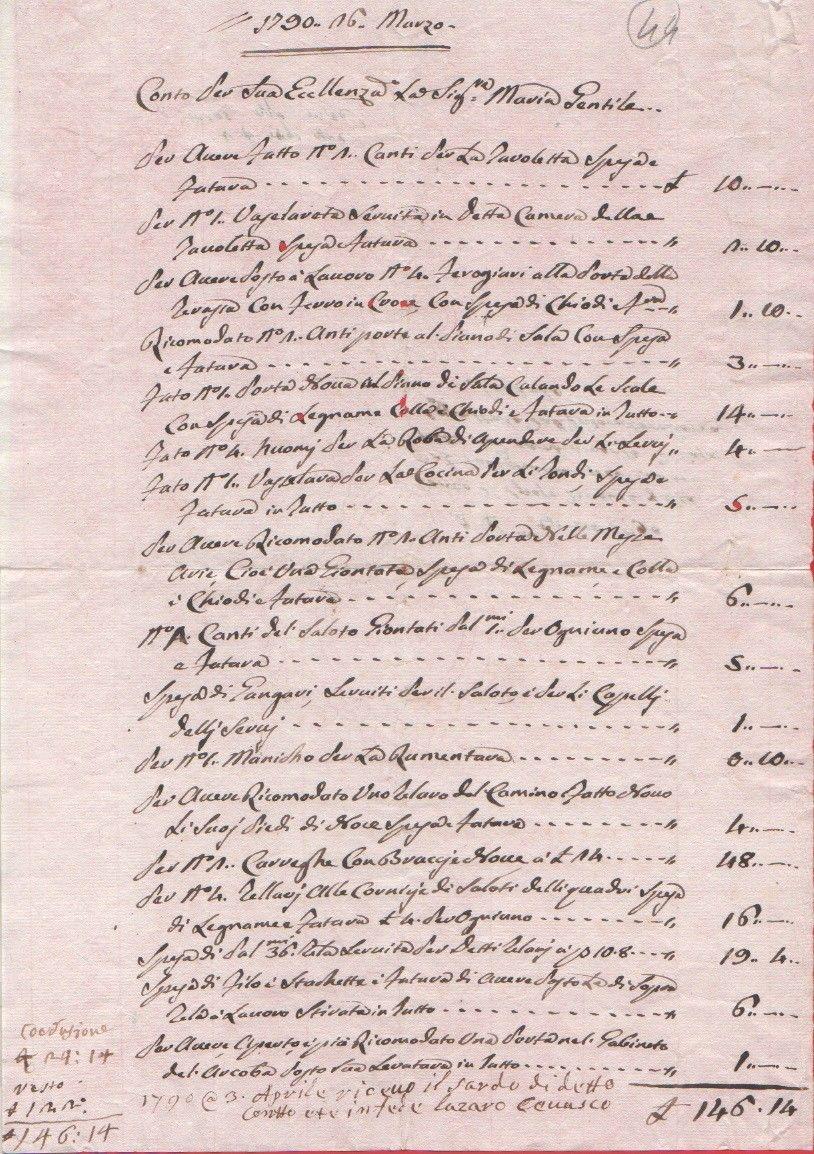 1790.. 16. Marzo.
44
Conto Per Sua Eccellenza La Sig.ra Maria Gentile..
Per Avere Fatto N.o 1.. Canti Per La Tavoletta Speza e
Fatura £ 10..—..
Per N.o 1.. Servita in Detta Camera della
Tavoletta Speza e Fatura " 1.. 10..
Per Avere Posto a Lavoro N.o 4. Ferogiari alla Porta della
Con Ferro in Croce, Con Speza di Chiodi e " 1.. 10..
Ricomodato N.o 1.. Anti porte al Piano di Sala Con Speza
e Fatura " 3..—..
Fato N.o 1. Porta Nova al Piano di Sala Calando Le Scale
Con Speza di Legname Colla e Chiodi e Fatura in Tutto " 14..—..
Fato N.o 4. Per La Roba di Apendere Per Li " 4..—..
Fato N.o 1. Per La Cocina Per Li Tondi Speza e
Fatura in Tutto " 5..—..
Per Avere Ricomodato N.o 1.. Anti Porta Nelle Meza
Arie, Cioè Una Giontata, Speza di Legname e Colla
e Chiodi e Fatura " 6..—..
Canti del Saloto Giontati Per Ogniuno Speza
e Fatura " 5..—..
Speza di Gangari, Serviti Per il Saloto, e Per Li Capelli
delli " 1..—..
Per N.o 1. Manicho Per La Rumentara " 0.. 10..
Per Avere Ricomodato Uno Telaro del Camino Fatto Novo
Li Suoj Piedi di Noce Speza e Fatura " 4..—..
Per Carreghe Con Braccje Nove a £ " 48..—..
Per N.o 4. Tellarj Alle Cornisje di Saloti delli quadri Speza
di Legname e Fatura £ 4. Per Ogniuno " 16..—..
Speza di Pal.mi 36. Tela Servita Per Detti Telarj a 10.8 " 19.. 4..
Speza di Filo e Stachette e Fatura di Avere Posto La di Sopra
Tela a Lavoro Stirata in Tutto " 6..—..
Per Avere Aperto, e poi Ricomodato Una Porta nel Gabineto
del Arcoba Posto Sua Levatura in Tutto " 1..—..
£ 146. 14
£ 24: 14
resto
£ 122.
£ 146: 14
1790 @ 3. Aprile riceuo il sardo di detto
Contto et intele lazaro Cevasco